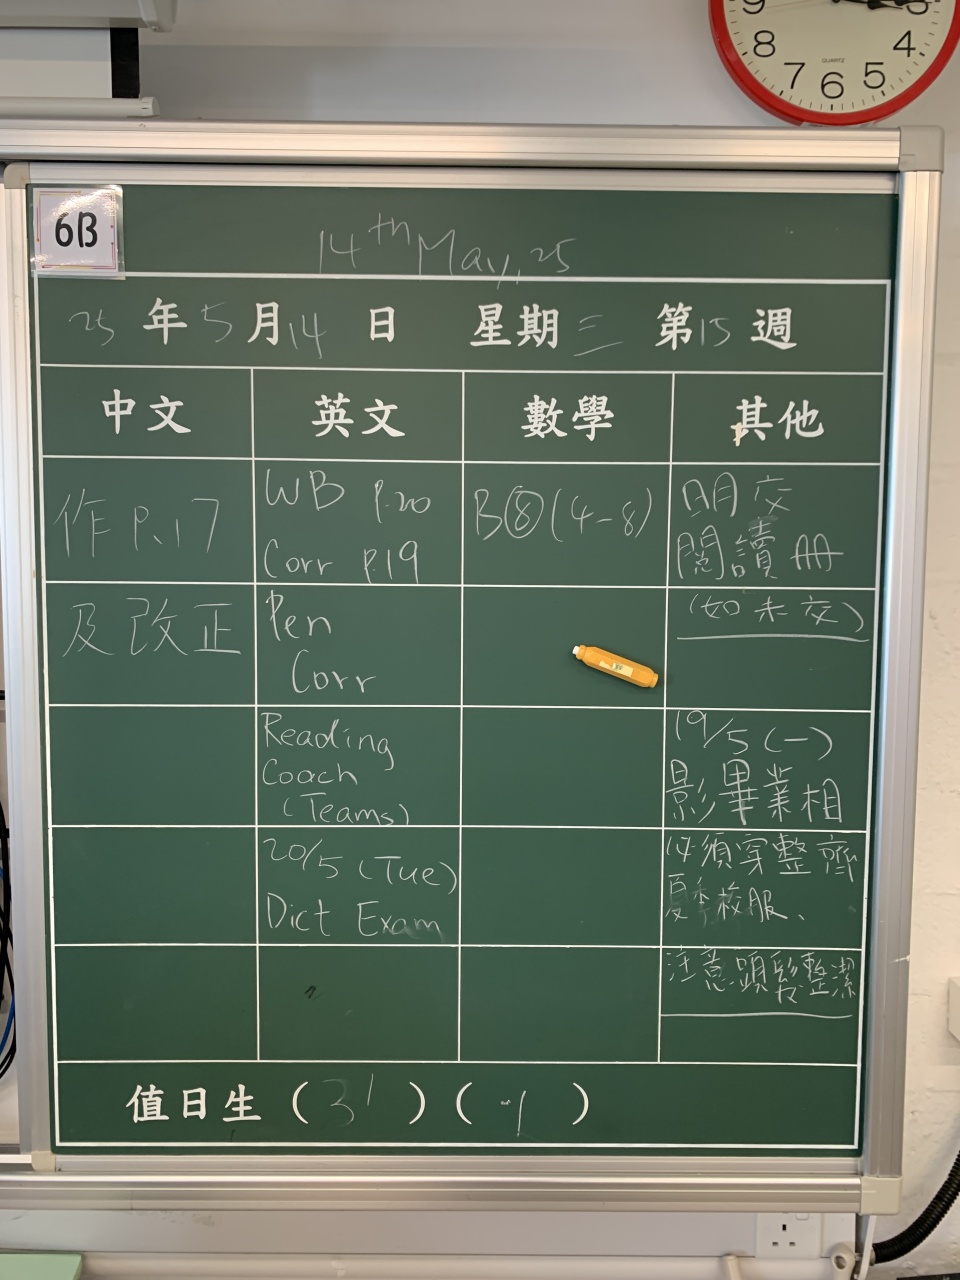 9 3
8 4
QUARTZ
7 6 5
6B
14th May, 25
25 年 5 月 14 日 星期三 第 15 週
中文 英文 數學 其他
作 P.17
及改正
WB P.20
Corr P.19
Pen
Corr
Reading
Coach
(Teams)
20/5 (Tue)
Dict Exam
B⑧(4-8)
明交
閱讀冊
(如未交)
19/5 (一)
影畢業相
必須穿整齊
夏季校服、
注意頭髮整潔
值日生 ( 31 ) ( 1 )